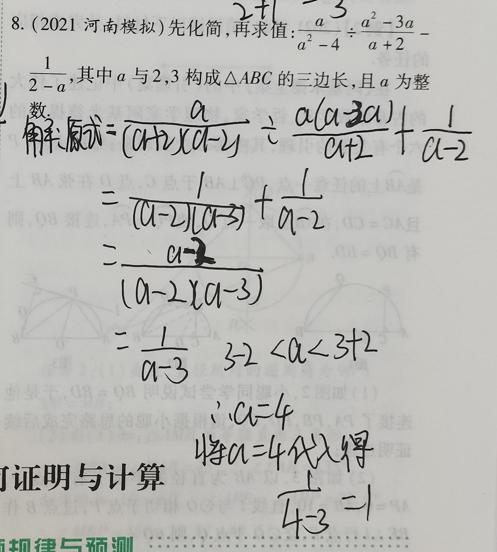 8. (2021 河南模拟) 先化简,再求值: a/(a²-4) ÷ (a²-3a)/(a+2) -
1/(2-a),其中 a 与 2,3 构成 △ABC 的三边长,且 a 为整
数.
解:原式= a/((a+2)(a-2)) ÷ a(a-3a)/(a+2) + 1/(a-2)
= 1/((a-2)(a-3)) + 1/(a-2)
= (a-2)/((a-2)(a-3))
= 1/(a-3) 3-2<a<3+2
∴a=4
将a=4代入得
1/(4-3)=1
何证明与计算
规律与预测